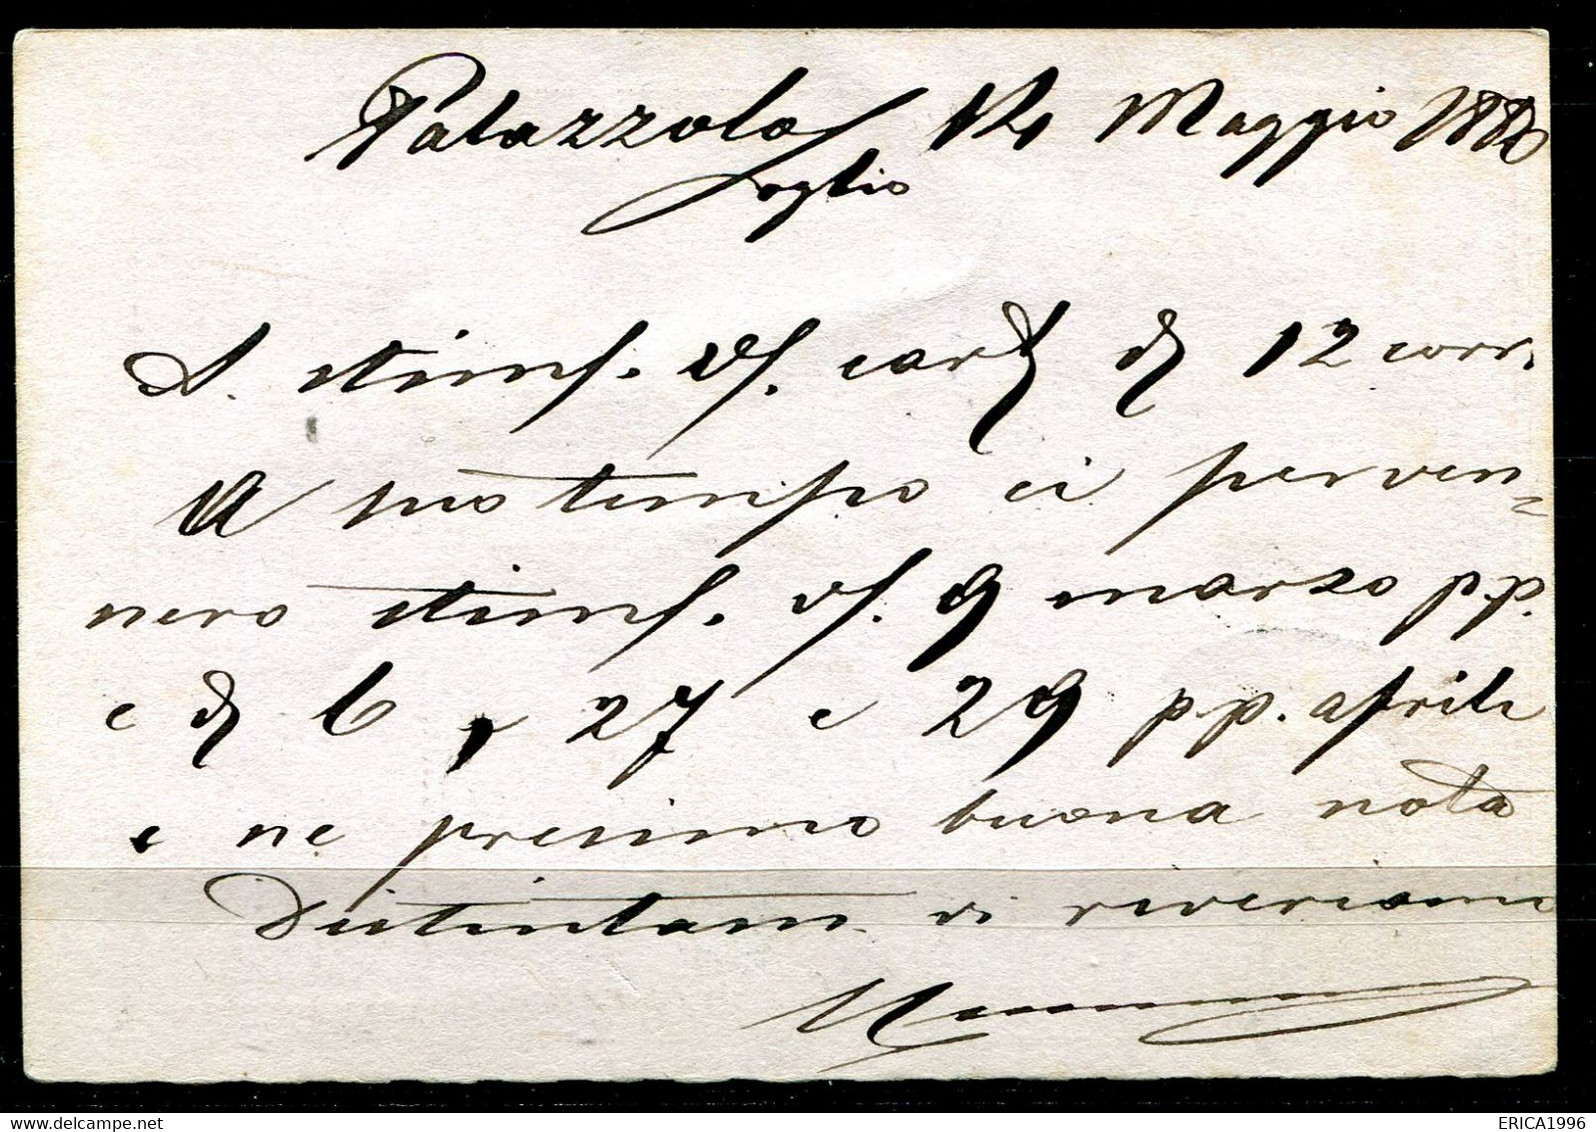 Palazzolo s/ 14 Maggio 1880
oglio
S. stims. vs. cart di 12 corr.
A suo tempo ci perven=
nero stims. vs. 9 marzo p.p.
e di 6, 27 e 29 p.p. aprile
e ne presimo buona nota
Distintam. vi riveriamo
ERICA1996